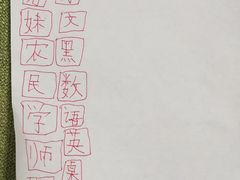 妹 文
农 黑
民 数
学 语
师 英
桌